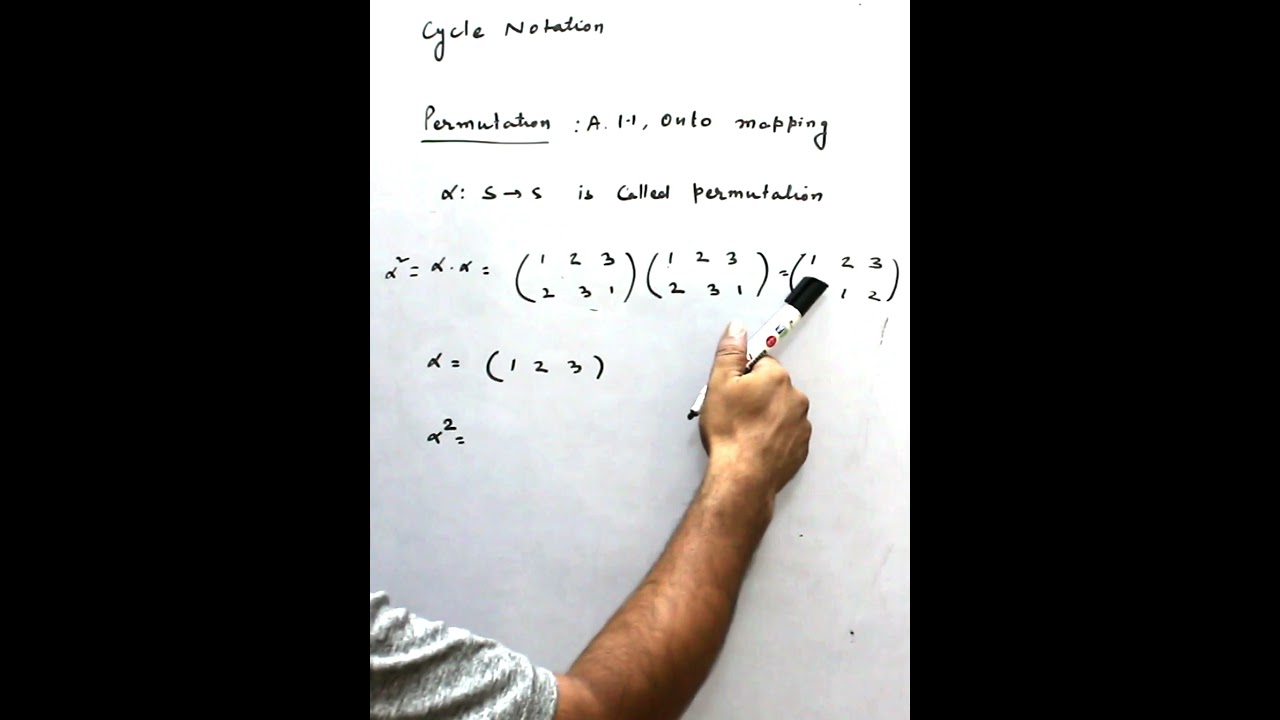 Cycle Notation
Permutation : A. 1-1, Onto mapping
α: S → S is Called permutation
α² = α · α = ( 1 2 3 ) ( 1 2 3 ) = ( 1 2 3 )
( 2 3 1 ) ( 2 3 1 ) ( 1 2 )
α = ( 1 2 3 )
α² =